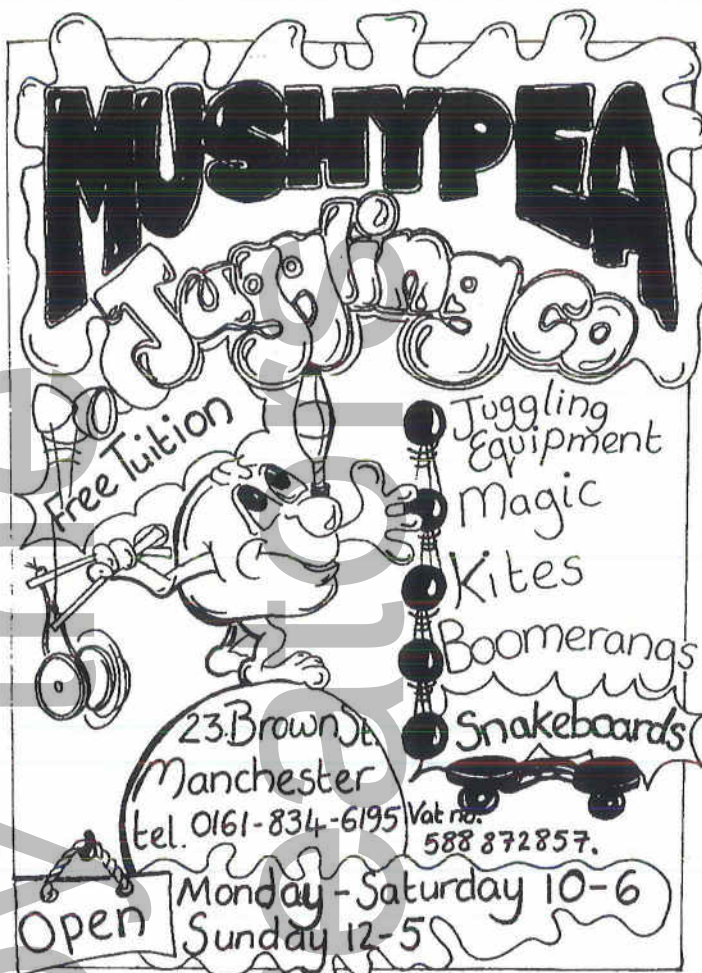 MUSHYPEA
Juggling Co
Free Tuition
Juggling
Equipment
Magic
Kites
Boomerangs
Snakeboards
23.Brown St.
Manchester
tel. 0161-834-6195
Vat no.
588 872857.
Open
Monday - Saturday 10-6
Sunday 12-5